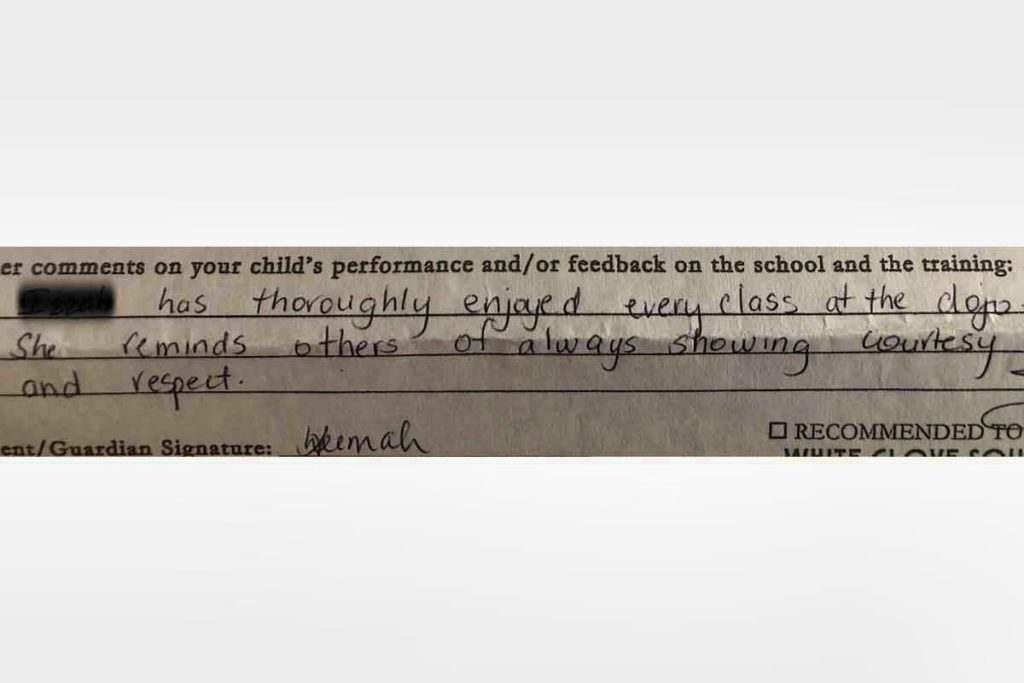 er comments on your child's performance and/or feedback on the school and the training:
has thoroughly enjoyed every class at the dojo.
She reminds others of always showing courtesy
and respect.
ent/Guardian Signature:
☐ RECOMMENDED TO
WHITE GLOVE